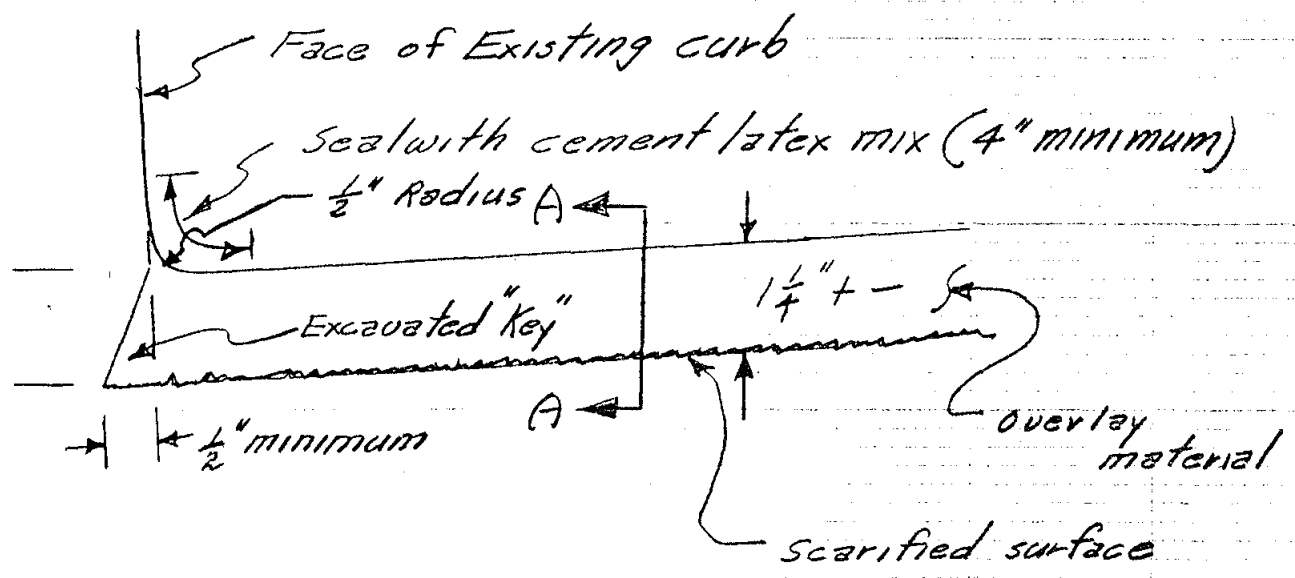 Face of Existing curb
Seal with cement latex mix (4" minimum)
1/2" Radius
A
1 1/4" + -
Excavated "Key"
A
1/2" minimum
overlay
material
scarified surface